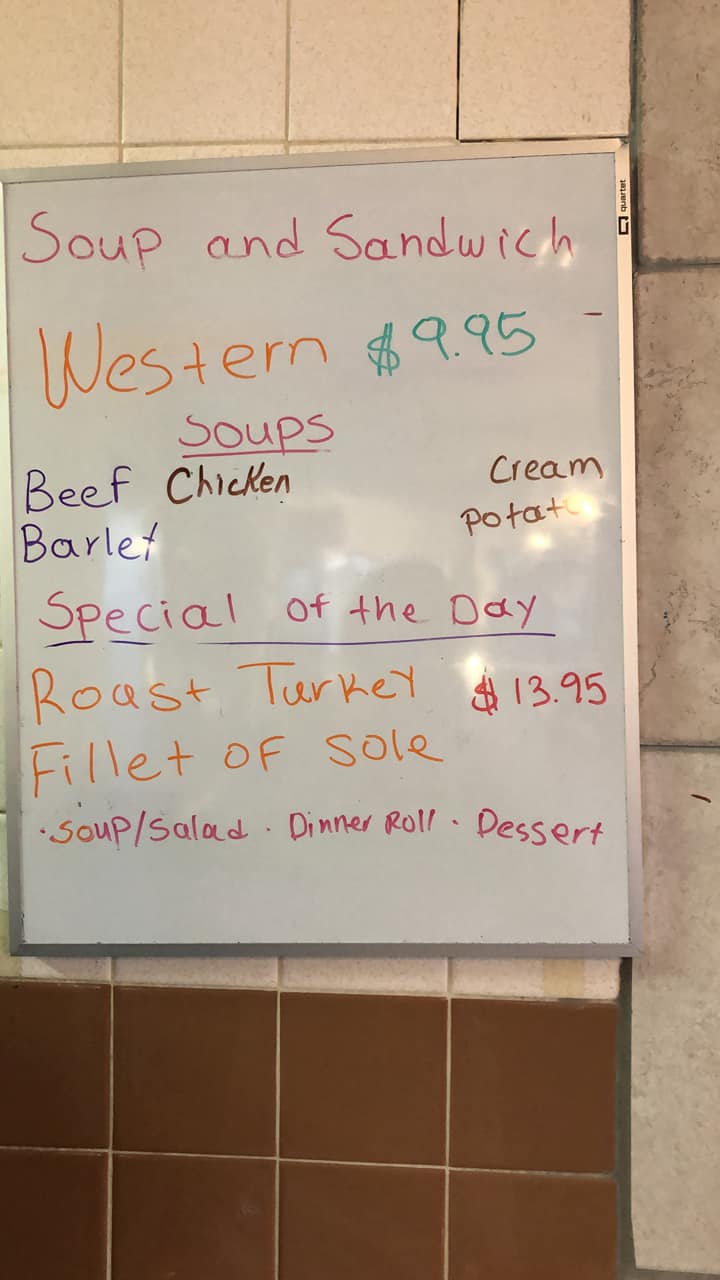 Soup and Sandwich
Western $9.95
Soups
Beef Chicken Cream
Barlet Potato
Special of the Day
Roast Turkey $13.95
Fillet OF Sole
• Soup/Salad • Dinner Roll • Dessert
quartet